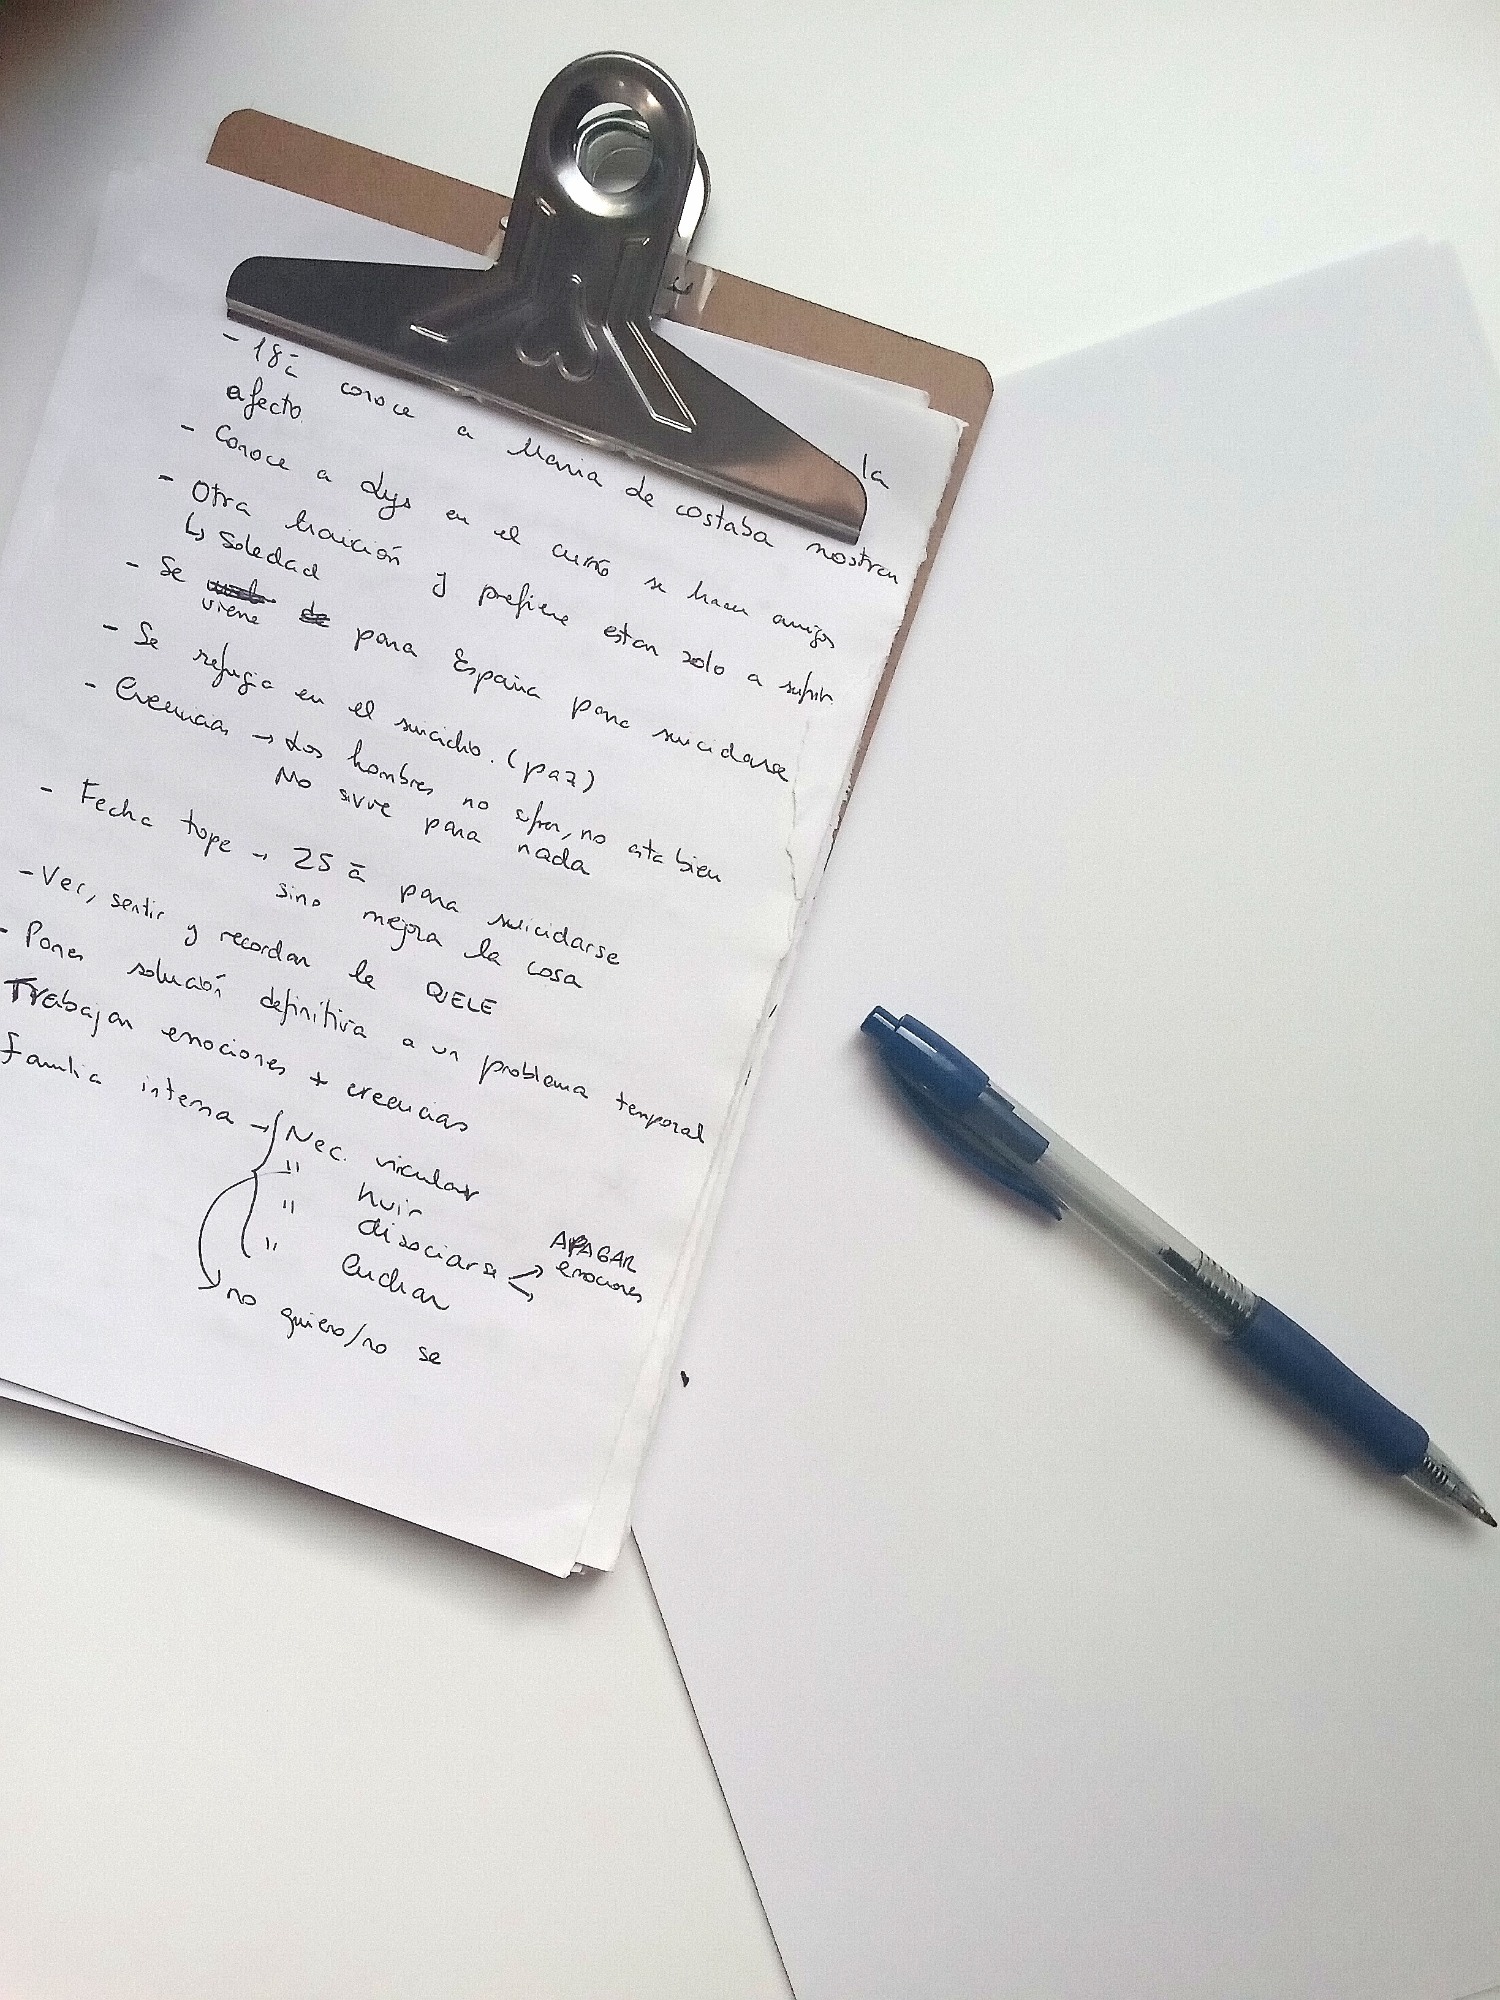 - 18 ā conoce a Maria de costaba mostrar la
afecto.
- Conoce a Lys en el curso se hacen amigos
- Otra traición y prefiere estar solo a sufrir
↳ Soledad
- Se viene para España para suicidarse
- Se refugia en el suicidio. (paz)
- Creencias → Los hombres no sfren, no ata bien
No sirve para nada
- Fecha tope → 25 ā para suicidarse
sino mejora la cosa
- Ver, sentir y recordar le DUELE
- Poner solución definitiva a un problema temporal
Trabajar emociones + creencias
familia interna → { Nec. vicular
" huir
" disociarse < APAGAR emociones
" luchar
no quiero/no se